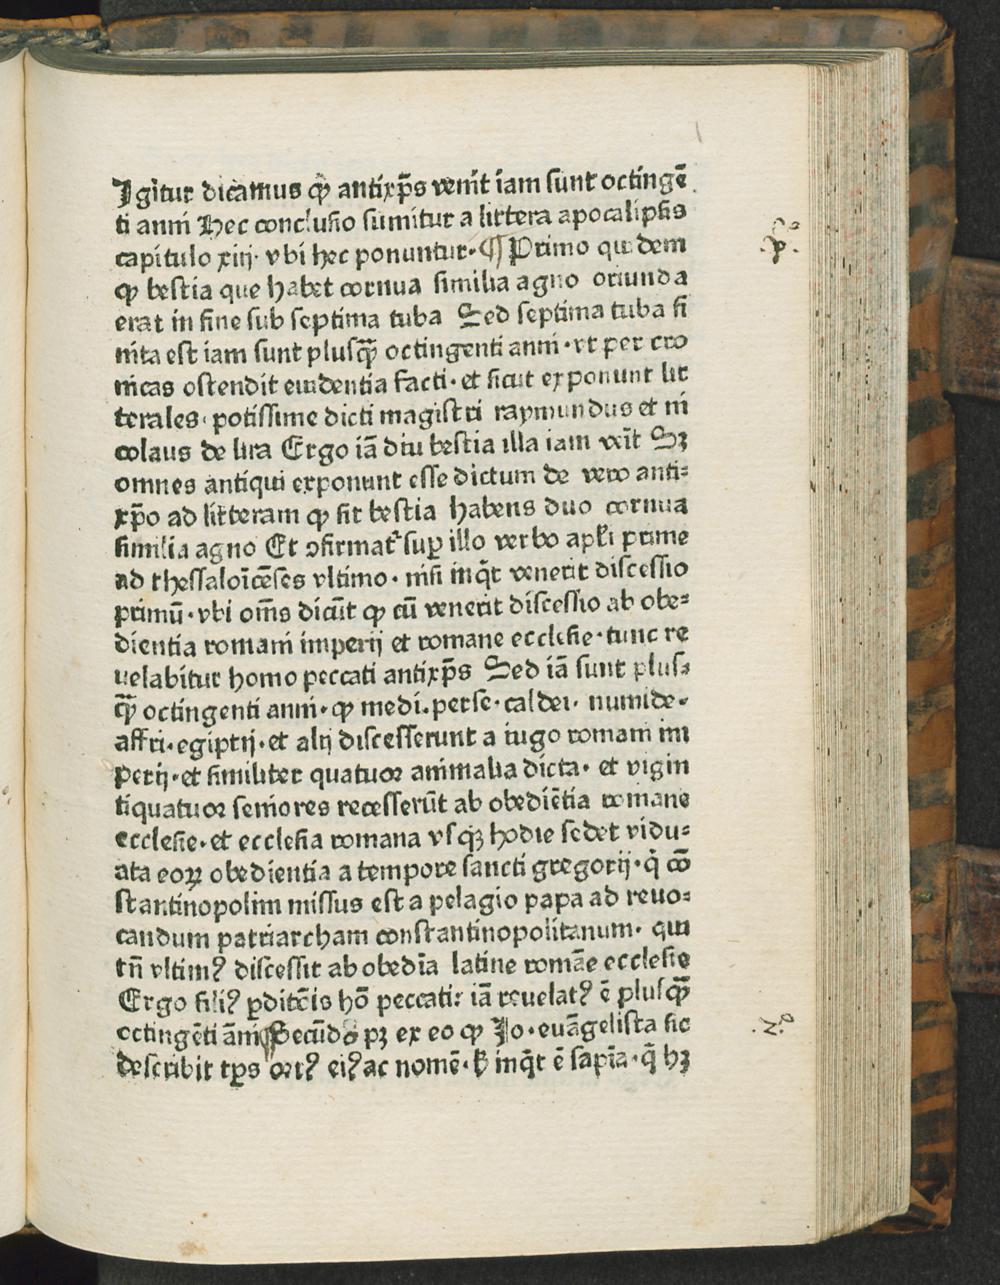 Igitur dicamus ꝙ antixp̄s venit iam sunt octingē
ti anni Hec conclusio sumitur a littera apocalipsis
capitulo xiij· vbi hec ponuntur· ¶ Primo quidem
ꝙ bestia que habet cornua similia agno oriunda
erat in fine sub septima tuba Sed septima tuba fi
nita est iam sunt plusꝙ̄ octingenti anni· vt per cro
nicas ostendit euidentia facti· et sicut exponunt lit
terales· potissime dicti magistri raymundus et ni
colaus de lira Ergo iā diu bestia illa iam veīt Sꝫ
omnes antiqui exponunt esse dictum de vero anti⸗
xp̄o ad litteram ꝙ sit bestia habens duo cornua
similia agno Et ↄfirmat᷑ suꝑ illo verbo apl̄i prime
ad thessaloīcēses vltimo· nisi inq̇t venerit discessio
primū· vbi om̄s dicūt ꝙ cū venerit discessio ab obe⸗
dientia romani imperij et romane ecclesie· tunc re
uelabitur homo peccati antixp̄s Sed iā sunt plus⸗
ꝙ̄ octingenti anni· ꝙ medi· perse· caldei· numide·
affri· egiptij· et alij discesserunt a iugo romani im
perij· et similiter quatuor animalia dicta· et vigin
tiquatuor seniores recesserūt ab obediētia romane
ecclesie· et ecclesia romana vsqꝫ hodie sedet vidu⸗
ata eoꝝ obedientia a tempore sancti gregorij· q̇ cō
stantinopolim missus est a pelagio papa ad reuo⸗
candum patriarcham constantinopolitanum· qui
tn̄ vltimꝰ discessit ab obedīa latine romāe ecclesie
Ergo filiꝰ ꝑditōis hō peccati: iā reuelatꝰ ē plusꝙ̄
octingēti āni ¶ Secūdo pꝫ ex eo ꝙ Io· euāgelista sic
describit tp̄s ortꝰ eiꝰ ac nomē· h̄ inq̇t ē sapīa· q̇ hꝫ